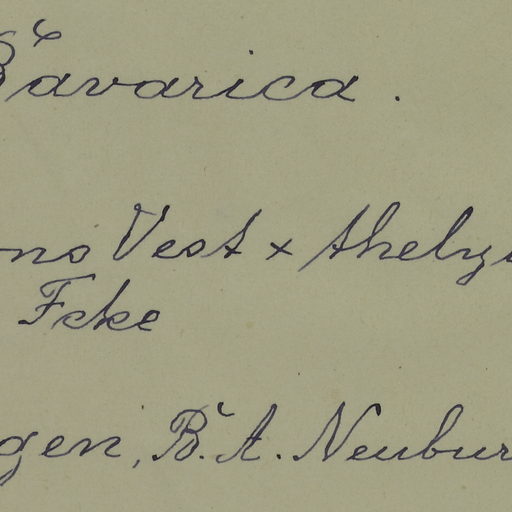 Bavarica.
ons Vest × thely
Fcke
gen, B. A. Neubur